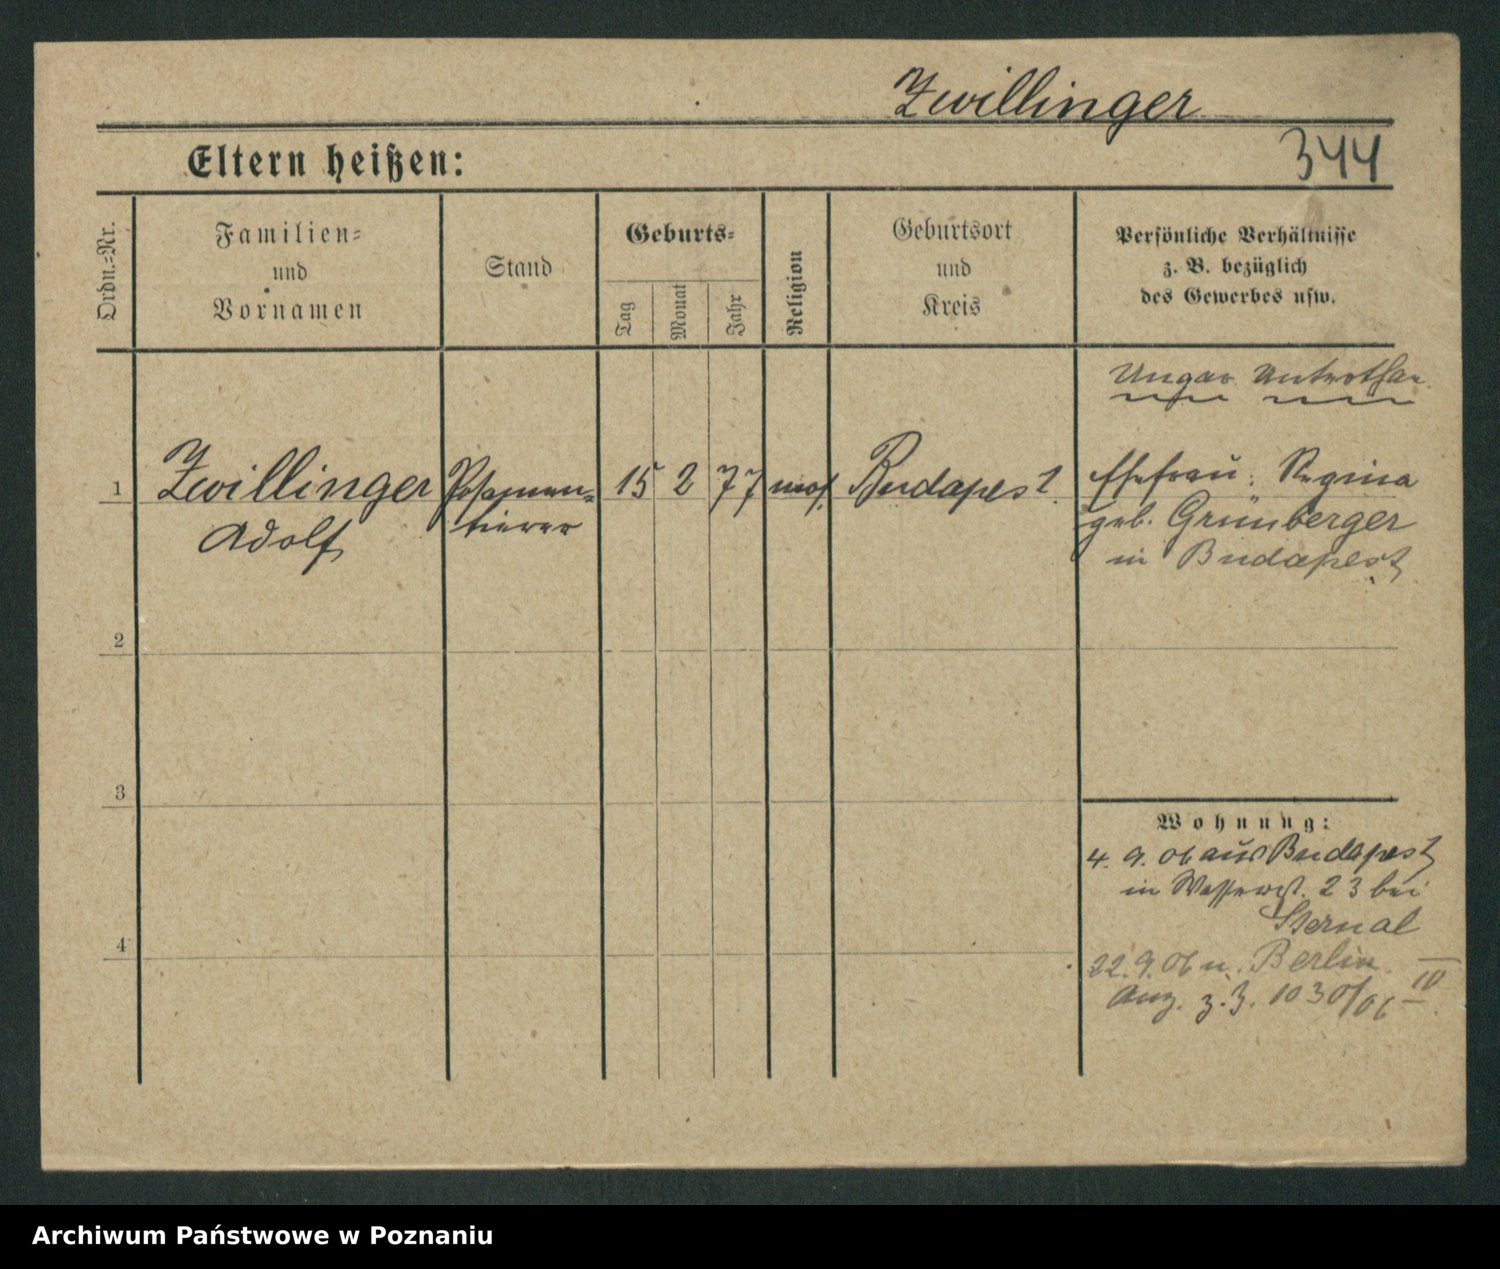 Zwillinger
344
Eltern heißen:
Ordn.-Nr.
Familien-
und
Vornamen
Stand
Geburts-
Tag
Monat
Jahr
Religion
Geburtsort
und
Kreis
Persönliche Verhältnisse
z. B. bezüglich
des Gewerbes usw.
Ungar. Unterthan.
1
Zwillinger
Adolf
Posamen-
tierer
15
2
77
mos.
Budapest.
Ehefrau: Regina
geb. Grünberger
in Budapest
2
3
4
Wohnung:
4. 9. 06 aus Budapest
in Wasserst. 23 bei
Sternal
22. 9. 06 n. Berlin
Anz. z. Z. 1030/06 IV
Archiwum Państwowe w Poznaniu